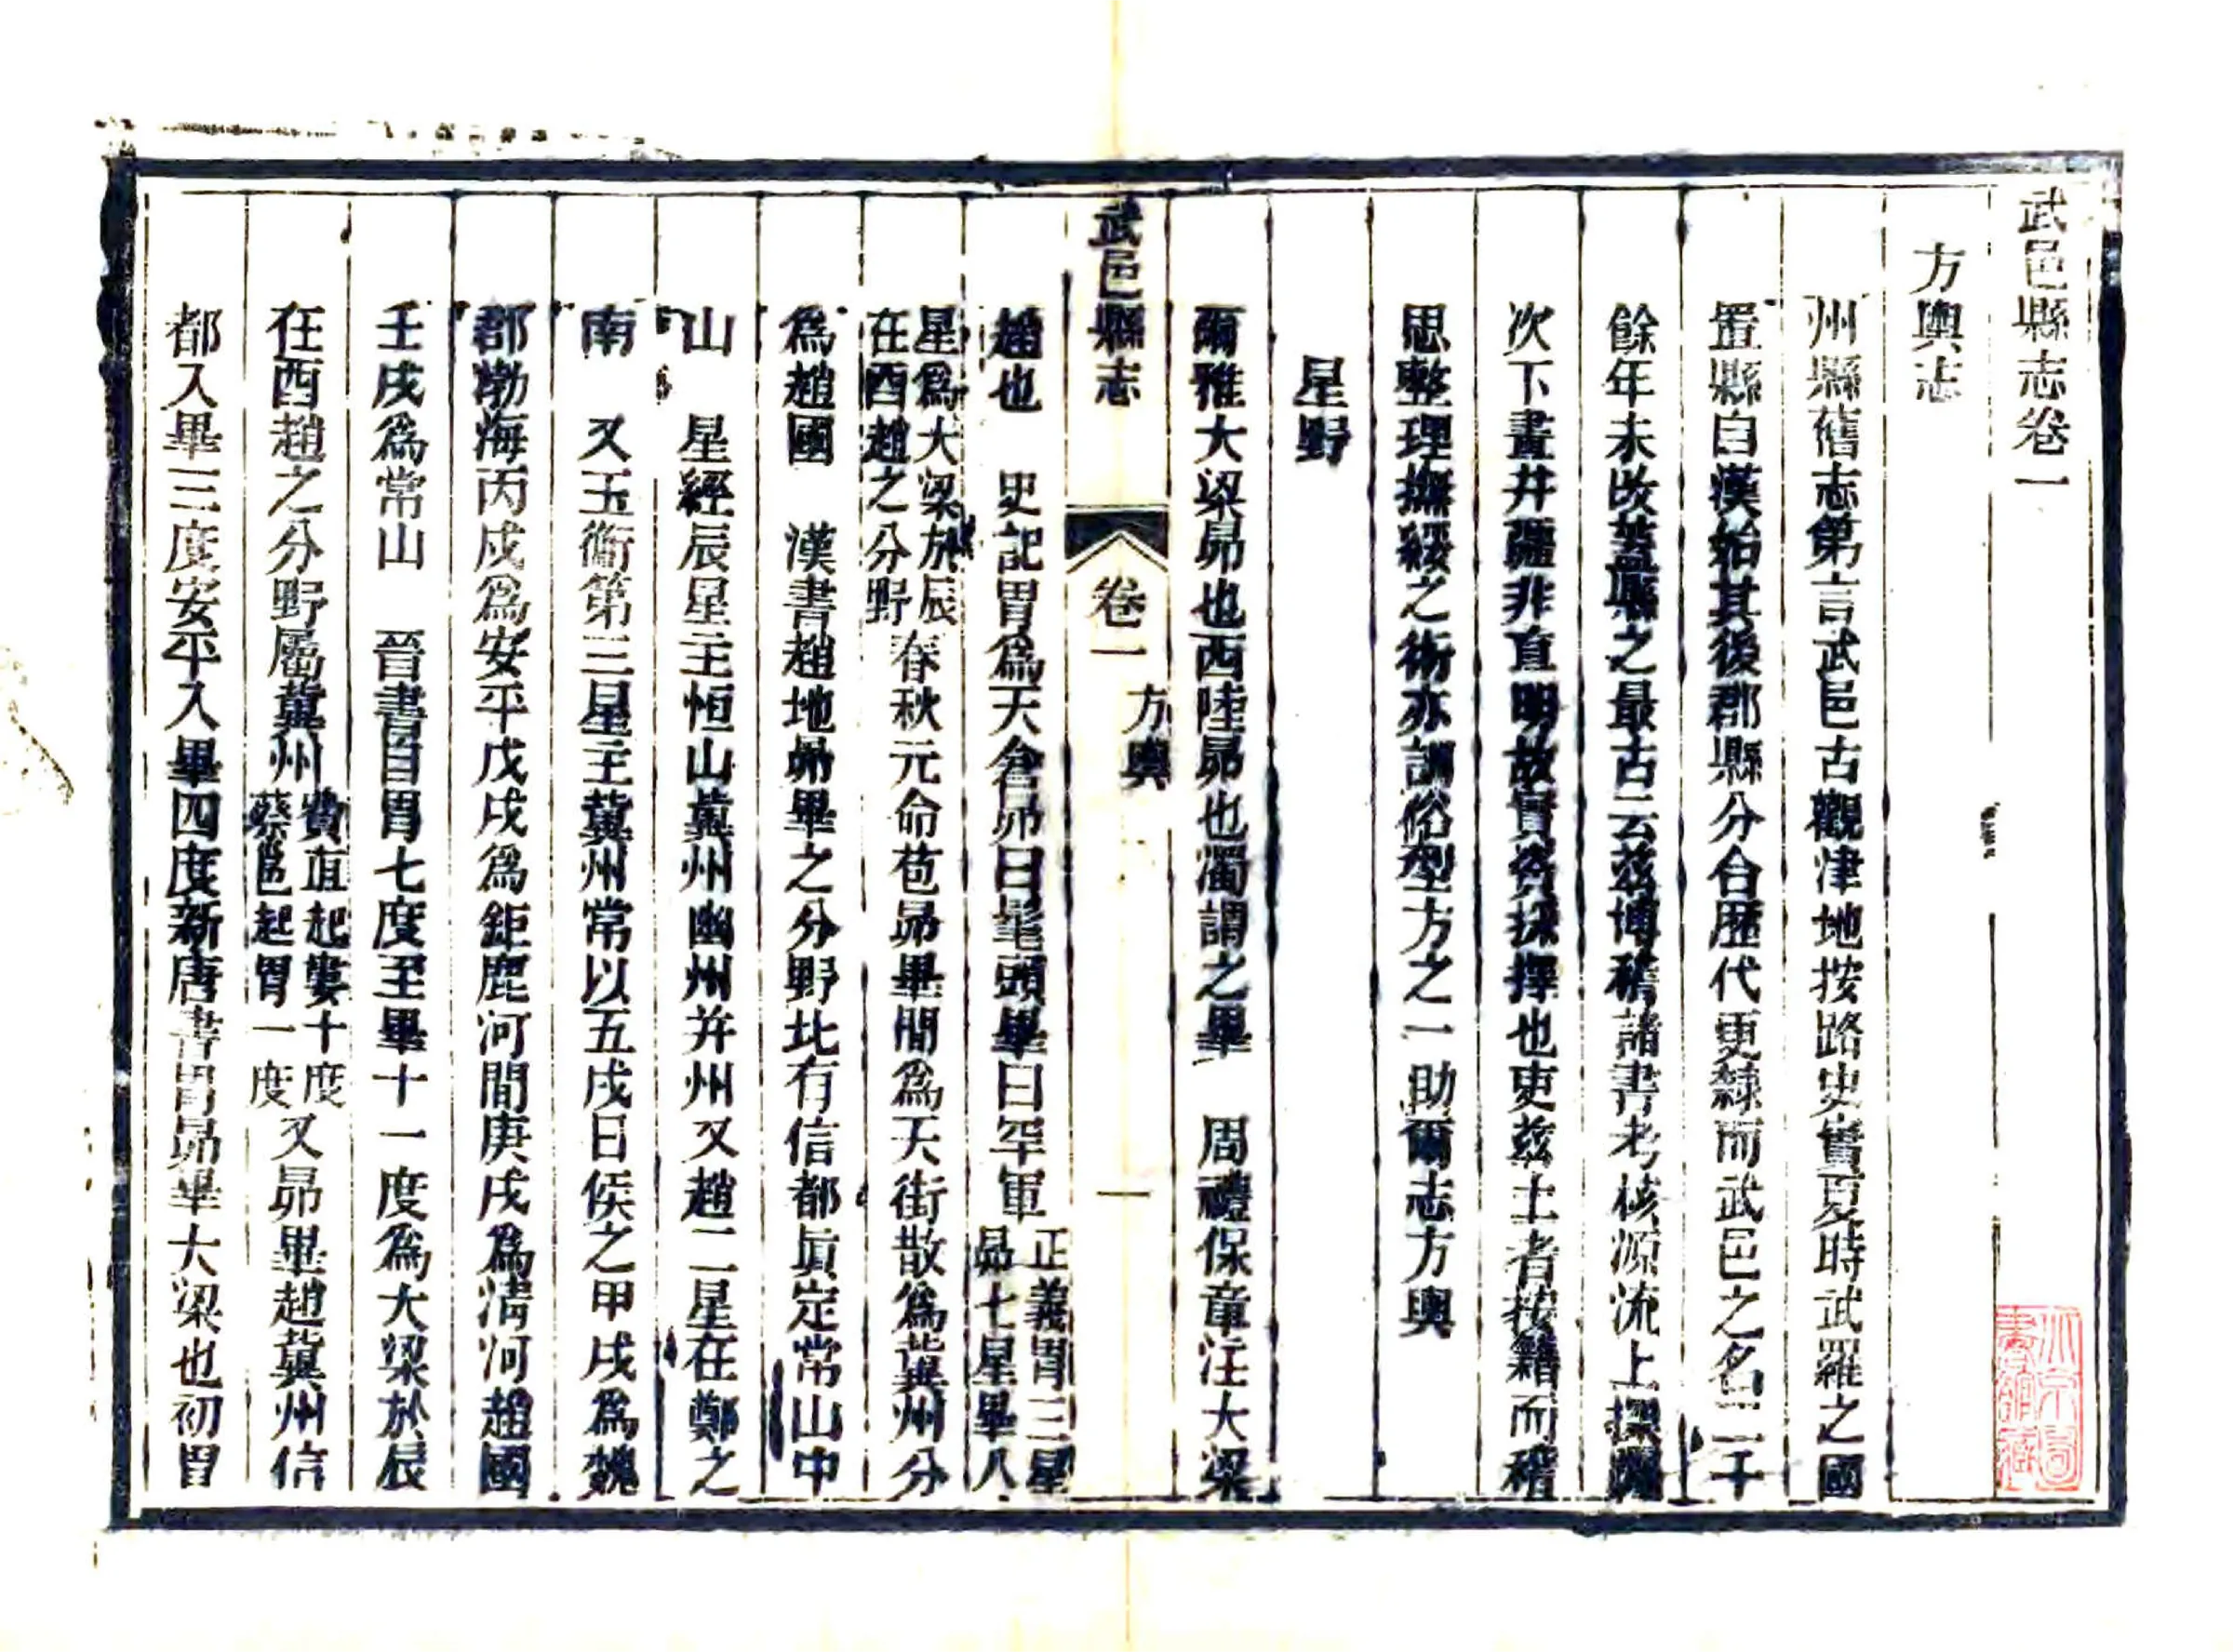 武邑縣志卷一
方輿志
州縣舊志第言武邑古觀津地按路史實夏時武羅之國
置縣自漢始其後郡縣分合歷代更隸而武邑之名二千
餘年未改蓋縣之最古云茲博稽諸書考核源流上探躔
次下畫井疆非直明故實資採擇也吏茲土者按籍而稽
思整理撫綏之術亦訓俗型方之一助爾志方輿
星野
爾雅大梁昴也西陸昴也濁謂之畢 周禮保章注大梁
武邑縣志 卷一 方輿 一
趙也 史記胃爲天倉昴曰髦頭畢曰罕車正義胃三星昴七星畢八
星爲大梁於辰在酉趙之分野春秋元命苞昴畢間爲天街散爲冀州分
爲趙國 漢書趙地昴畢之分野北有信都眞定常山中
山 星經辰星主恒山冀州幽州并州又趙二星在鄭之
南 又玉衡第三星主冀州常以五戌日候之甲戌爲魏
郡渤海丙戌爲安平戊戌爲鉅鹿河間庚戌爲清河趙國
壬戌爲常山 晉書自胃七度至畢十一度爲大梁於辰
在酉趙之分野屬冀州費直起婁十度蔡邕起胃一度又昴畢趙冀州信
都入畢三度安平入畢四度新唐書胃昴畢大梁也初胃